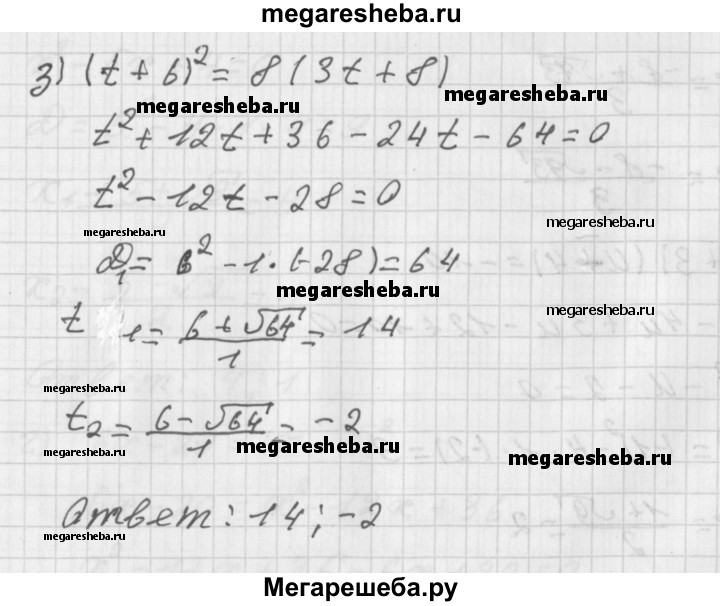 megaresheba.ru
3) (t + 6)² = 8(3t + 8)
megaresheba.ru megaresheba.ru
t² + 12t + 36 - 24t - 64 = 0
t² - 12t - 28 = 0
megaresheba.ru megaresheba.ru
D₁ = 6² - 1·(-28) = 64
megaresheba.ru
t₁ = (6 + √64)/1 = 14
megaresheba.ru megaresheba.ru
t₂ = (6 - √64)/1 = -2
megaresheba.ru megaresheba.ru megaresheba.ru
Ответ: 14; -2
megaresheba.ru megaresheba.ru
Мегарешеба.ру